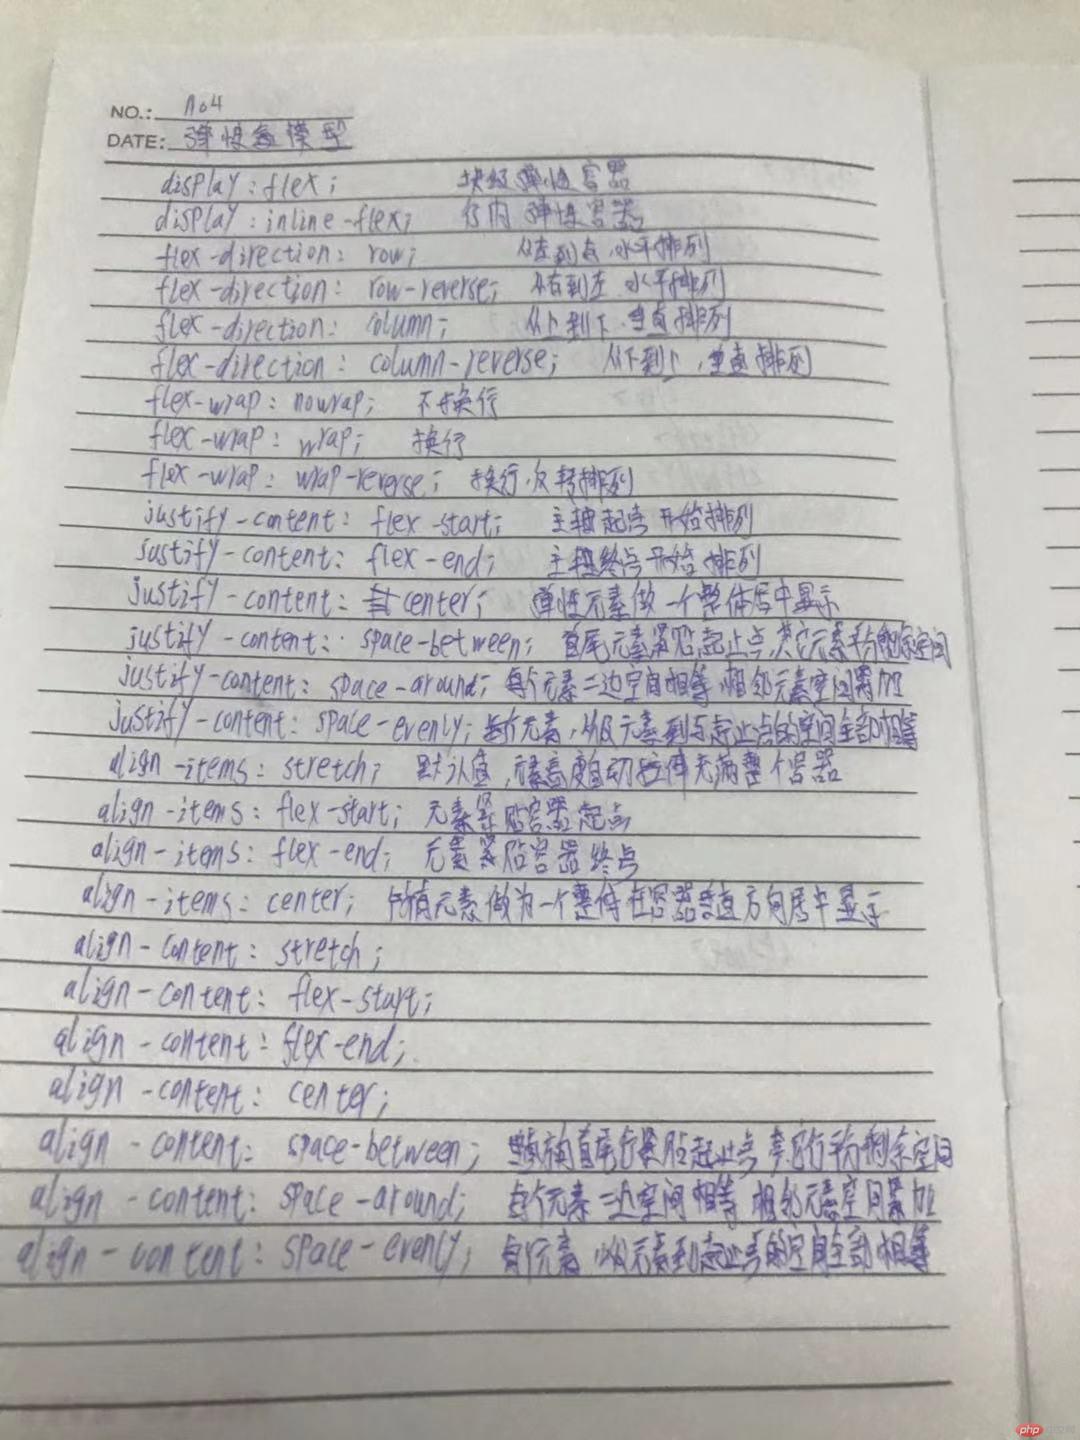 NO.: no4
DATE: 弹性盒模型
display:flex; 块级弹性容器
display:inline-flex; 行内弹性容器
flex-direction: row; 从左到右,水平排列
flex-direction: row-reverse; 从右到左 水平排列
flex-direction: column; 从上到下.垂直排列
flex-direction: column-reverse; 从下到上,垂直排列
flex-wrap: nowrap; 不换行
flex-wrap: wrap; 换行
flex-wrap: wrap-reverse; 换行.反转排列
justify-content: flex-start; 主轴起点开始排列
justify-content: flex-end; 主轴终点开始排列
justify-content: center; 弹性元素做一个整体居中显示
justify-content: space-between; 首尾元素紧贴起止点,其它元素平分剩余空间
justify-content: space-around; 每个元素二边空间相等,相邻元素空间累加
justify-content: space-evenly; 每个元素,以及元素到与起止点的空间全部相等
align-items: stretch; 默认值,元素高度自动拉伸充满整个容器
align-items: flex-start; 元素紧贴容器起点
align-items: flex-end; 元素紧贴容器终点
align-items: center; 所有元素做为一个整体在容器垂直方向居中显示
align-content: stretch;
align-content: flex-start;
align-content: flex-end;
align-content: center;
align-content: space-between; 首尾行紧贴起止点 行平分剩余空间
align-content: space-around; 每个元素二边空间相等 相邻元素空间累加
align-content: space-evenly; 每个元素 以及元素到起止点的空间全部相等
php